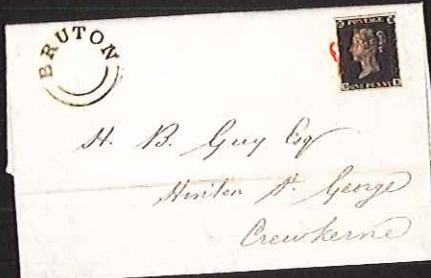 BRUTON
POSTAGE
ONE PENNY
H. B. Guy Esq
Hinton St. George
Crewkerne